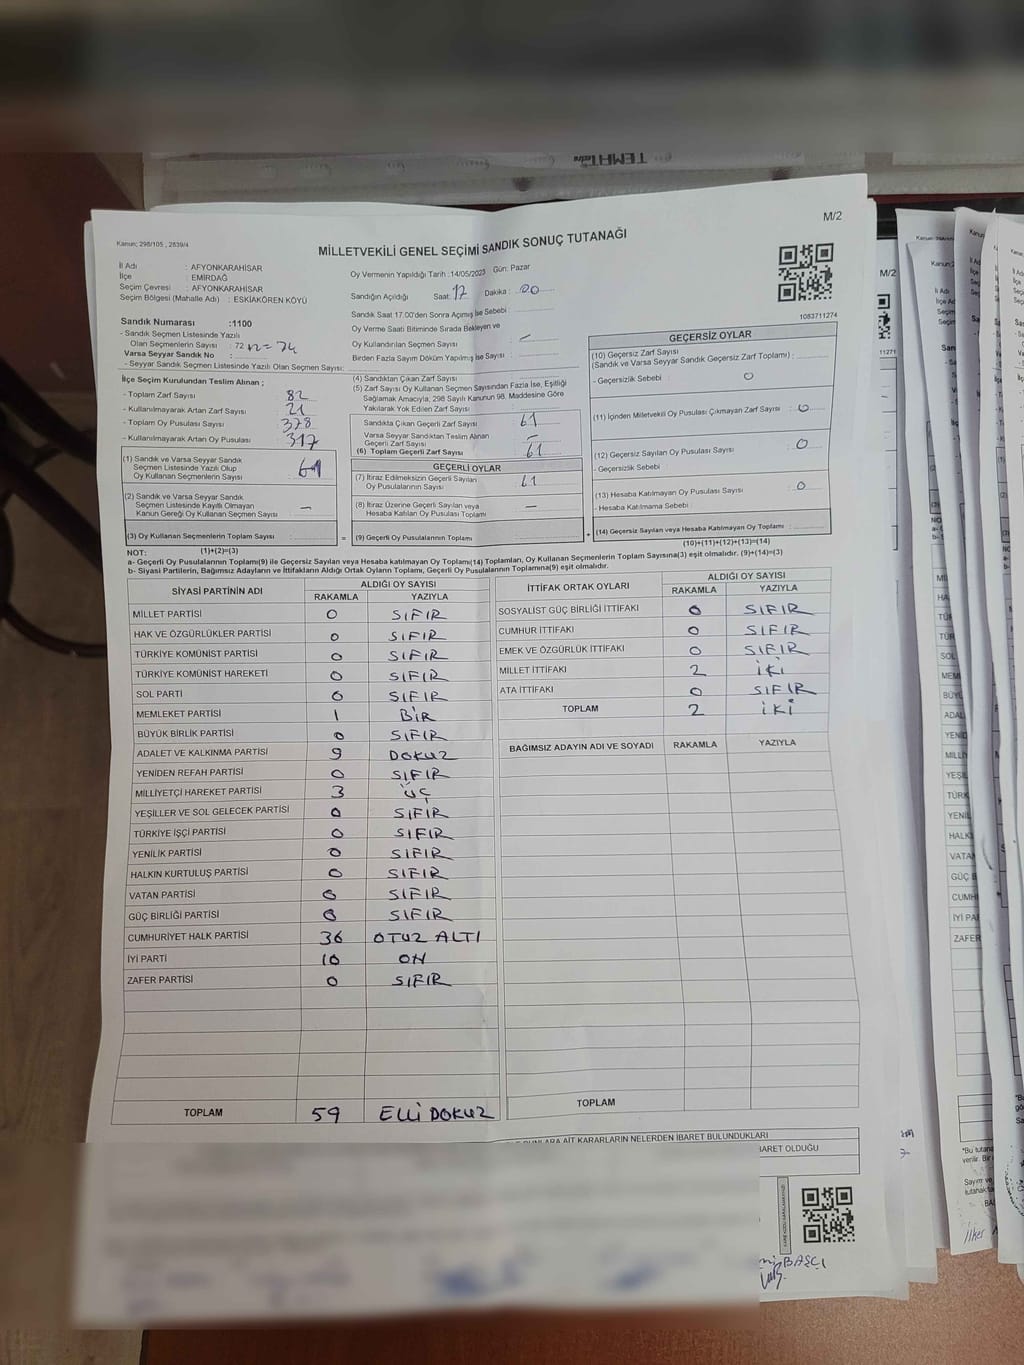 M/2
Kanun; 298/105 , 2839/4
MİLLETVEKİLİ GENEL SEÇİMİ SANDIK SONUÇ TUTANAĞI
İl Adı : AFYONKARAHİSAR
İlçe : EMİRDAĞ
Seçim Çevresi : AFYONKARAHİSAR
Seçim Bölgesi (Mahalle Adı) : ESKİAKÖREN KÖYÜ
Oy Vermenin Yapıldığı Tarih :14/05/2023 Gün: Pazar
Sandığın Açıldığı Saat: 17 Dakika : 00
Sandık Saat 17.00'den Sonra Açımış İse Sebebi
Oy Verme Saati Bitiminde Sırada Bekleyen ve
Oy Kullandırılan Seçmen Sayısı : –
Birden Fazla Sayım Döküm Yapılmış İse Sayısı :
1083711274
Sandık Numarası :1100
- Sandık Seçmen Listesinde Yazılı
Olan Seçmenlerin Sayısı : 72
Varsa Seyyar Sandık No :
- Seyyar Sandık Seçmen Listesinde Yazılı Olan Seçmen Sayısı:
İlçe Seçim Kurulundan Teslim Alınan ;
- Toplam Zarf Sayısı : 82
- Kullanılmayarak Artan Zarf Sayısı : 21
- Toplam Oy Pusulası Sayısı : 378
- Kullanılmayarak Artan Oy Pusulası : 317
(1) Sandık ve Varsa Seyyar Sandık
Seçmen Listesinde Yazılı Olup
Oy Kullanan Seçmenlerin Sayısı : 61
(2) Sandık ve Varsa Seyyar Sandık
Seçmen Listesinde Kayıtlı Olmayan
Kanun Gereği Oy Kullanan Seçmen Sayısı : –
(3) Oy Kullanan Seçmenlerin Toplam Sayısı :
(4) Sandıktan Çıkan Zarf Sayısı :
(5) Zarf Sayısı Oy Kullanan Seçmen Sayısından Fazla İse, Eşitliği
Sağlamak Amacıyla; 298 Sayılı Kanunun 98. Maddesine Göre
Yakılarak Yok Edilen Zarf Sayısı :
Sandıkta Çıkan Geçerli Zarf Sayısı : 61
Varsa Seyyar Sandıktan Teslim Alınan
Geçerli Zarf Sayısı : –
(6) Toplam Geçerli Zarf Sayısı : 61
GEÇERLİ OYLAR
(7) İtiraz Edilmeksizin Geçerli Sayılan
Oy Pusulalarının Sayısı : 61
(8) İtiraz Üzerine Geçerli Sayılan veya
Hesaba Katılan Oy Pusulası Toplamı : –
(9) Geçerli Oy Pusulalarının Toplamı :
GEÇERSİZ OYLAR
(10) Geçersiz Zarf Sayısı
(Sandık ve Varsa Seyyar Sandık Geçersiz Zarf Toplamı) :
- Geçersizlik Sebebi : 0
(11) İçinden Milletvekili Oy Pusulası Çıkmayan Zarf Sayısı : 0
(12) Geçersiz Sayılan Oy Pusulası Sayısı : 0
- Geçersizlik Sebebi :
(13) Hesaba Katılmayan Oy Pusulası Sayısı : 0
- Hesaba Katılmama Sebebi :
(14) Geçersiz Sayılan veya Hesaba Katılmayan Oy Toplamı :
NOT: (1)+(2)=(3) (10)+(11)+(12)+(13)=(14)
a- Geçerli Oy Pusulalarının Toplamı(9) ile Geçersiz Sayılan veya Hesaba katılmayan Oy Toplamı(14) Toplamları, Oy Kullanan Seçmenlerin Toplam Sayısına(3) eşit olmalıdır. (9)+(14)=(3)
b- Siyasi Partilerin, Bağımsız Adayların ve İttifakların Aldığı Ortak Oyların Toplamı, Geçerli Oy Pusulalarının Toplamına(9) eşit olmalıdır.
SİYASİ PARTİNİN ADI ALDIĞI OY SAYISI
RAKAMLA YAZIYLA
MİLLET PARTİSİ 0 SIFIR
HAK VE ÖZGÜRLÜKLER PARTİSİ 0 SIFIR
TÜRKİYE KOMÜNİST PARTİSİ 0 SIFIR
TÜRKİYE KOMÜNİST HAREKETİ 0 SIFIR
SOL PARTİ 0 SIFIR
MEMLEKET PARTİSİ 1 BİR
BÜYÜK BİRLİK PARTİSİ 0 SIFIR
ADALET VE KALKINMA PARTİSİ 9 DOKUZ
YENİDEN REFAH PARTİSİ 0 SIFIR
MİLLİYETÇİ HAREKET PARTİSİ 3 ÜÇ
YEŞİLLER VE SOL GELECEK PARTİSİ 0 SIFIR
TÜRKİYE İŞÇİ PARTİSİ 0 SIFIR
YENİLİK PARTİSİ 0 SIFIR
HALKIN KURTULUŞ PARTİSİ 0 SIFIR
VATAN PARTİSİ 0 SIFIR
GÜÇ BİRLİĞİ PARTİSİ 0 SIFIR
CUMHURİYET HALK PARTİSİ 36 OTUZ ALTI
İYİ PARTİ 10 ON
ZAFER PARTİSİ 0 SIFIR
TOPLAM 59 ELLİ DOKUZ
İTTİFAK ORTAK OYLARI ALDIĞI OY SAYISI
RAKAMLA YAZIYLA
SOSYALİST GÜÇ BİRLİĞİ İTTİFAKI 0 SIFIR
CUMHUR İTTİFAKI 0 SIFIR
EMEK VE ÖZGÜRLÜK İTTİFAKI 0 SIFIR
MİLLET İTTİFAKI 2 İKİ
ATA İTTİFAKI 0 SIFIR
TOPLAM 2 İKİ
BAĞIMSIZ ADAYIN ADI VE SOYADI RAKAMLA YAZIYLA
TOPLAM
BUNLARA AİT KARARLARIN NELERDEN İBARET BULUNDUKLARI
İBARET OLDUĞU
BAŞÇI